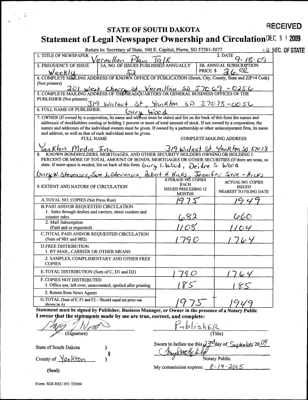 RECEIVED
DEC 11 2009
S.D. SEC. OF STATE
STATE OF SOUTH DAKOTA
Statement of Legal Newspaper Ownership and Circulation
Return to: Secretary of State, 500 E. Capitol, Pierre, SD 57501-5077
1. TITLE OF NEWSPAPER Vermillion Plain Talk
2. DATE 9-18-09
3. FREQUENCY OF ISSUE Weekly
3A. NO. OF ISSUES PUBLISHED ANNUALLY 52
3B. ANNUAL SUBSCRIPTION PRICE $ 26.00
4. COMPLETE MAILING ADDRESS OF KNOWN OFFICE OF PUBLICATION (Street, City, County, State and ZIP+4 Code) (Not printers)
201 West Cherry St Vermillion SD 57069-0256
5. COMPLETE MAILING ADDRESS OF THE HEADQUARTERS OF GENERAL BUSINESS OFFICE OF THE PUBLISHER (Not printer)
319 Walnut St Yankton SD 57078-0056
6. FULL NAME OF PUBLISHER: Gary Wood
7. OWNER (If owned by a corporation, its name and address must be stated and list on the back of this form the names and addresses of stockholders owning or holding 1 percent or more of total amount of stock. If not owned by a corporation, the names and addresses of the individual owners must be given. If owned by a partnership or other unincorporated firm, its name and address, as well as that of each individual must be given.
FULL NAME
COMPLETE MAILING ADDRESS
Yankton Media Inc
319 Walnut St Yankton SD 57078
8. KNOWN BONDHOLDERS, MORTGAGEES, AND OTHER SECURITY HOLDERS OWNING OR HOLDING 1 PERCENT OR MORE OF TOTAL AMOUNT OF BONDS, MORTGAGES OR OTHER SECURITIES (If there are none, so state. If more space is needed, list on back of this form
Gary L. Wood
9. EXTENT AND NATURE OF CIRCULATION
AVERAGE NO. COPIES EACH ISSUED PRECEDING 12 MONTHS
ACTUAL NO. COPIES ISSUED NEAREST TO FILING DATE
A. TOTAL NO. COPIES (Net Press Run) 1975 1949
B. PAID AND/OR REQUESTED CIRCULATION
1. Sales through dealers and carriers, street vendors and counter sales. 682 660
2. Mail Subscription (Paid and or requested) 1108 1104
C. TOTAL PAID AND/OR REQUESTED CIRCULATION (Sum of 9B1 and 9B2) 1790 1764
D. FREE DISTRIBUTION
1. BY MAIL, CARRIER OR OTHER MEANS
2. SAMPLES, COMPLIMENTARY AND OTHER FREE COPIES
E. TOTAL DISTRIBUTION (Sum of C, D1 and D2) 1790 1764
F. COPIES NOT DISTRIBUTED
1. Office use, left over, unaccounted, spoiled after printing 185 185
2. Return from News Agents
G. TOTAL (Sum of E, F1 and F2 - Should equal net press run shown in A) 1975 1949
Statement must be signed by Publisher, Business Manager, or Owner in the presence of a Notary Public
I swear that the statements made by me are true, correct, and complete:
(Signature)
Publisher
(Title)
State of South Dakota )
) §
County of Yankton )
Sworn to before me this 23rd day of September 2009
Notary Public
(Seal)
My commission expires: 8-19-2015
Form: SOS REC 051 7/2004